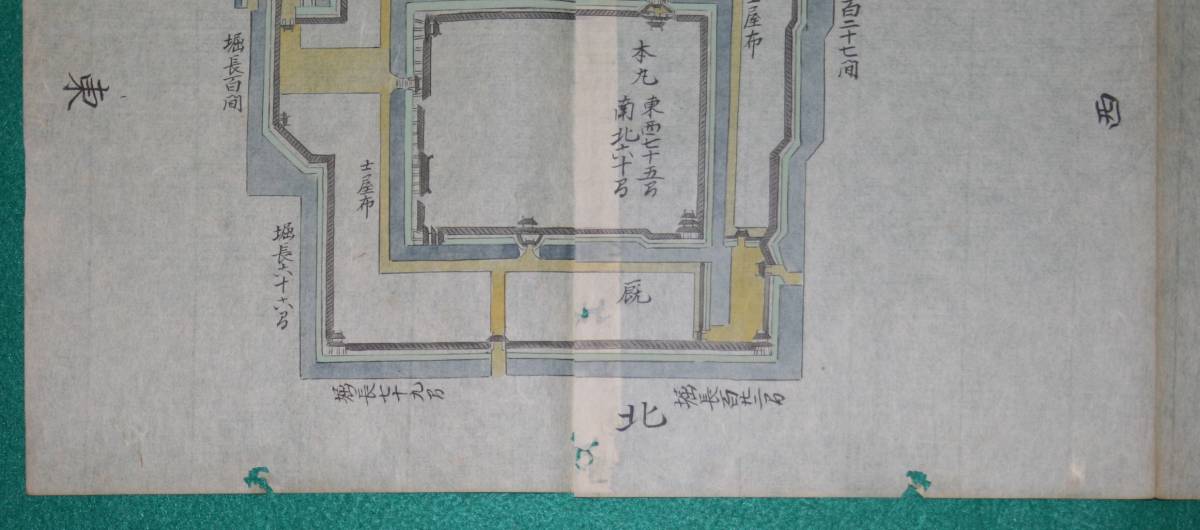 百二十七間
士屋布
本丸
東西七十五間
南北六十間
堀長百間
東
西
士屋布
堀長六十六間
厩
堀長七十九間
北